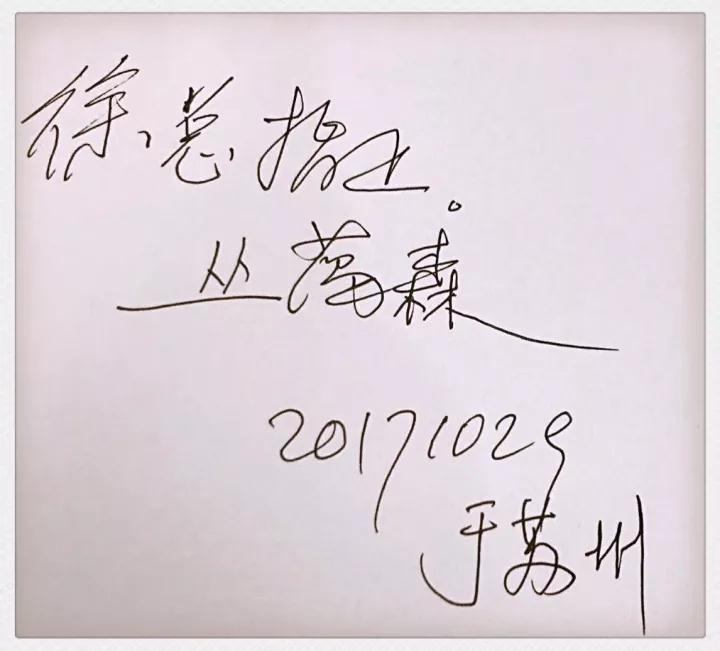 徐总指正。
丛蔼森
20171029
于苏州